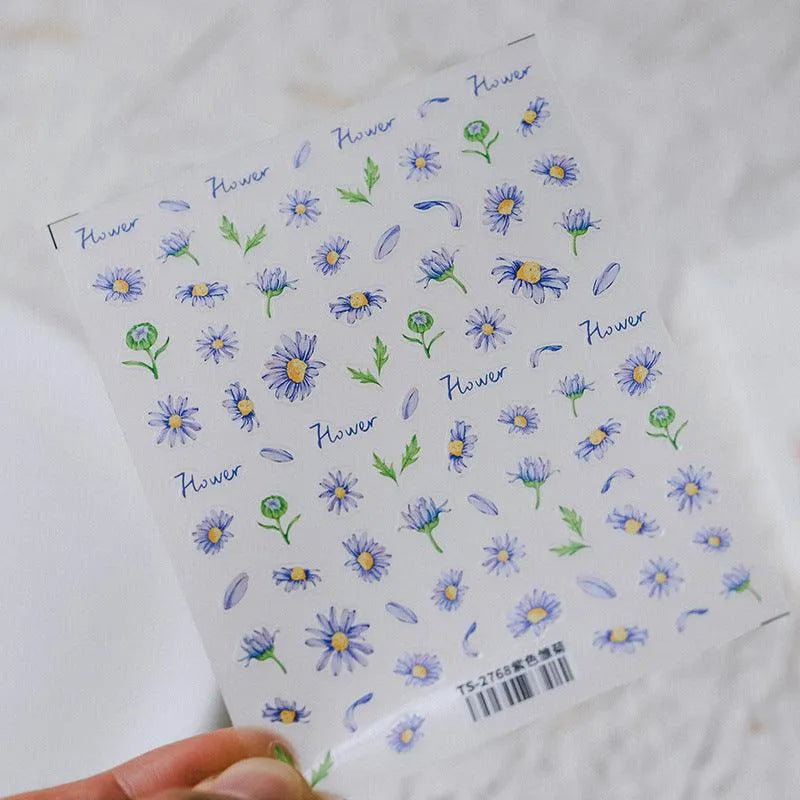 Flower
Flower
Flower
Flower
Flower
Flower
Flower
Flower
TS-2768紫色雏菊